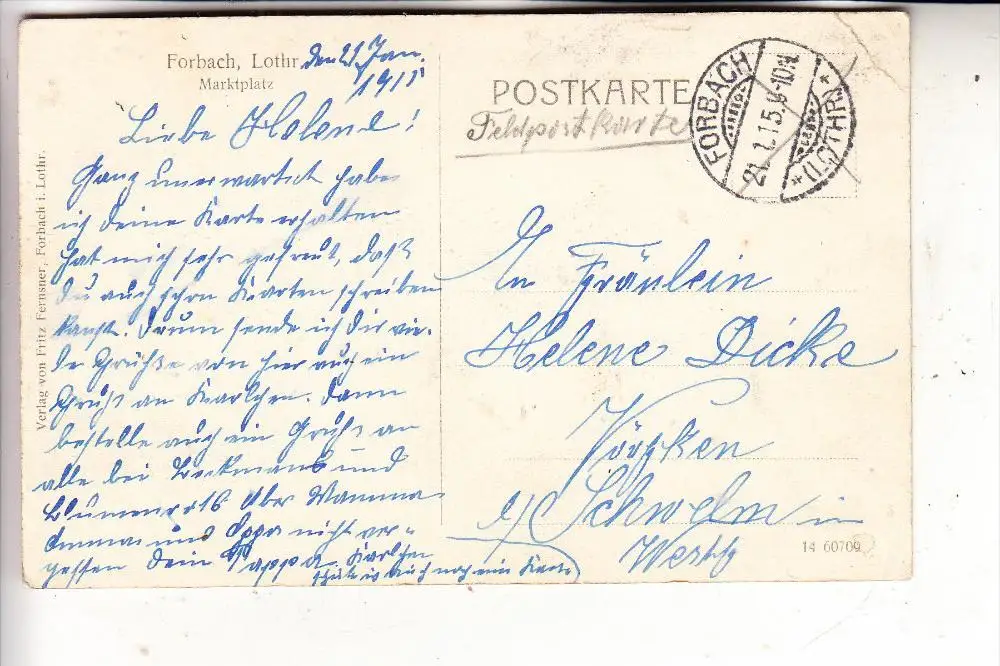 Forbach, Lothr. den 21 Jan.
Marktplatz 1915
Liebe Helene!
Ganz unerwartet habe
ich deine Karte erhalten
hat mich sehr gefreut, daß
du auch schon Karten schreiben
kanst. Drum sende ich dir vie-
le Grüße von hier auch ein
Gruß an Karlchen. Dann
bestelle auch ein Gruß an
alle bei Beckmans und
über Mamma
Emma und Oppa nicht ver-
gessen Dein Pappa Karlchen
auch noch ein Karte
Verlag von Fritz Fernsner, Forbach i. Lothr.
POSTKARTE
Feldpostkarte
FORBACH
21.1.15.9-10N.
*(LOTHR)*
An Fräulein
Helene Dicke
Schwelm in
Westf
14 60709